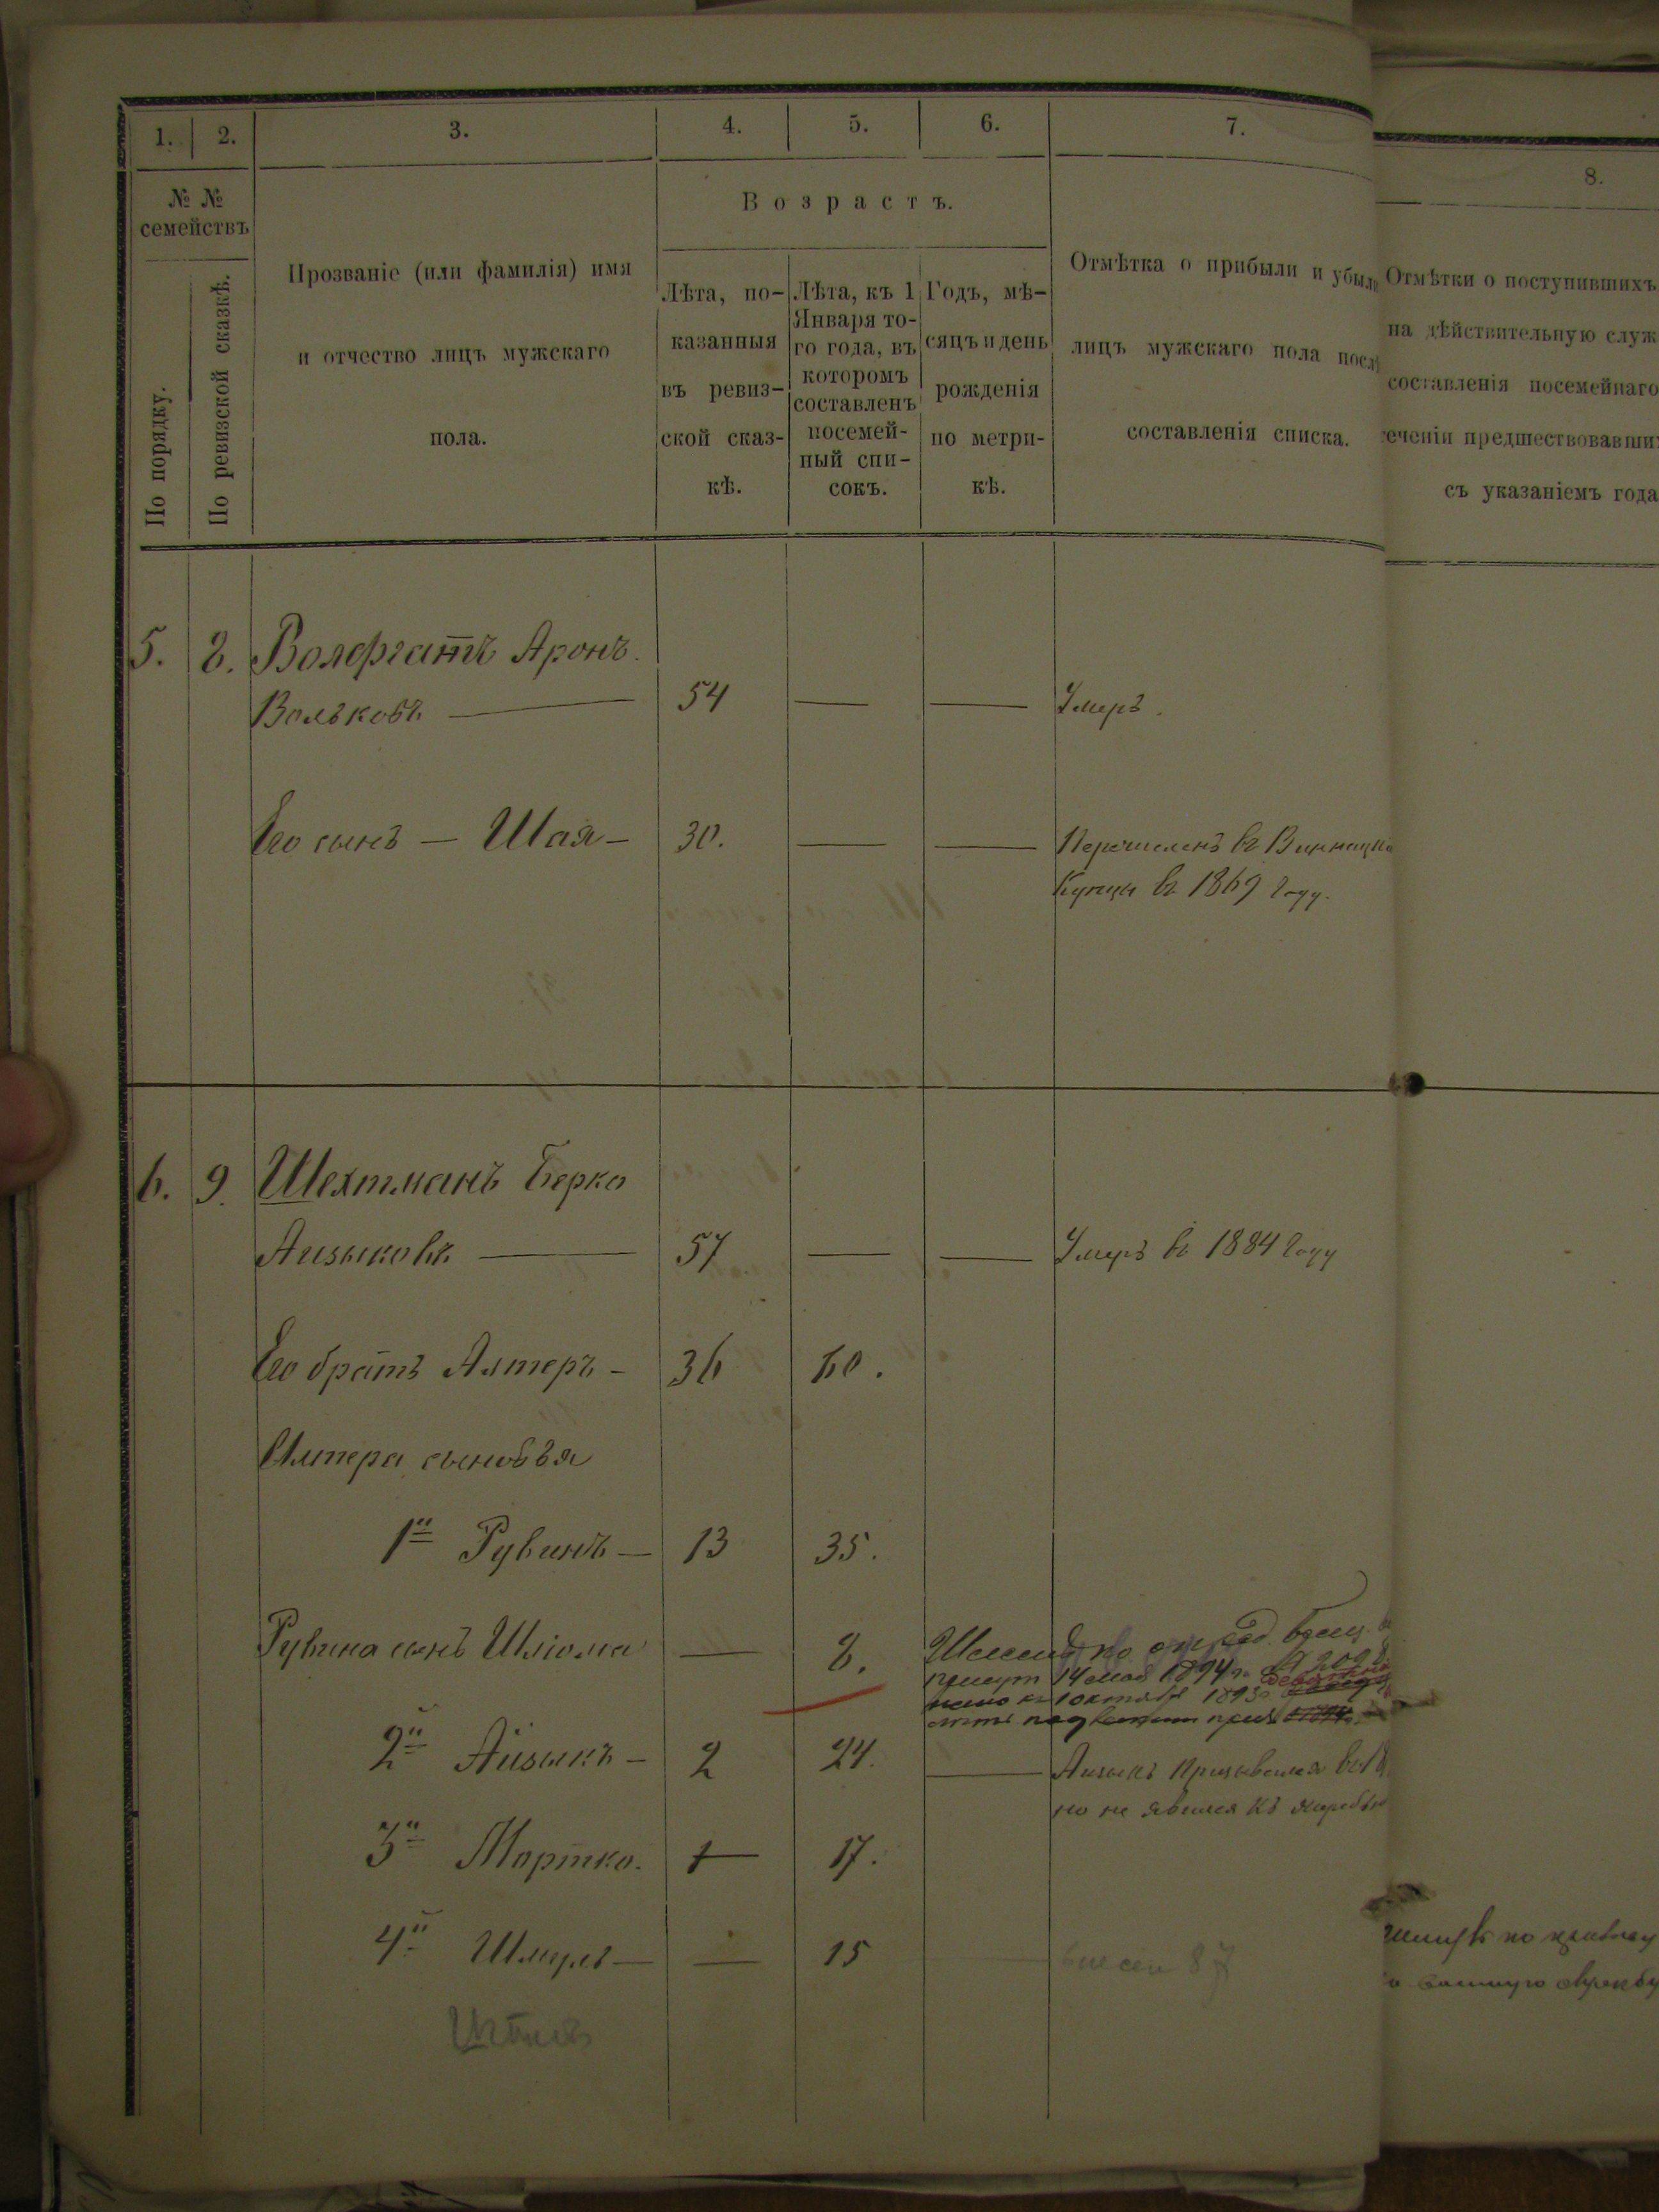 1. 2. 3. 4. 5. 6. 7.
8.
№ №
семействъ
По порядку.
По ревизской сказкѣ.
Прозваніе (или фамилія) имя
и отчество лицъ мужскаго
пола.
Возрастъ.
Лѣта, по-
казанныя
въ ревиз-
ской сказ-
кѣ.
Лѣта, къ 1
Января то-
го года, въ
которомъ
составленъ
посемей-
ный спи-
сокъ.
Годъ, мѣ-
сяцъ и день
рожденія
по метри-
кѣ.
Отмѣтка о прибыли и убыли
лицъ мужскаго пола послѣ
составленія списка.
Отмѣтки о поступившихъ
на дѣйствительную служ
составленія посемейнаго
теченіи предшествовавши
съ указаніемъ года
5. 8. Волфгантъ Аронъ.
Вольковъ — 54 — — Умеръ.
Его сынъ — Шая — 30. — — Перечисленъ въ Винницкіе
Купцы въ 1869 году.
6. 9. Шехтманъ Берко
Аизыковъ — 57 — — Умеръ въ 1884 году
Его братъ Алтеръ — 36 60.
Алтера сыновья
1й Рувинъ — 13 35.
Рувина сынъ Шлiома — 8.
14 мая 1894 г.
къ 1 октября 1893
2й Айзыкъ — 2 24. — Аизыкъ призывался въ
но не явился къ жеребью
3й Мортко. 17.
4й Шмуль — — 15 внесен 87
по призыву
военную службу